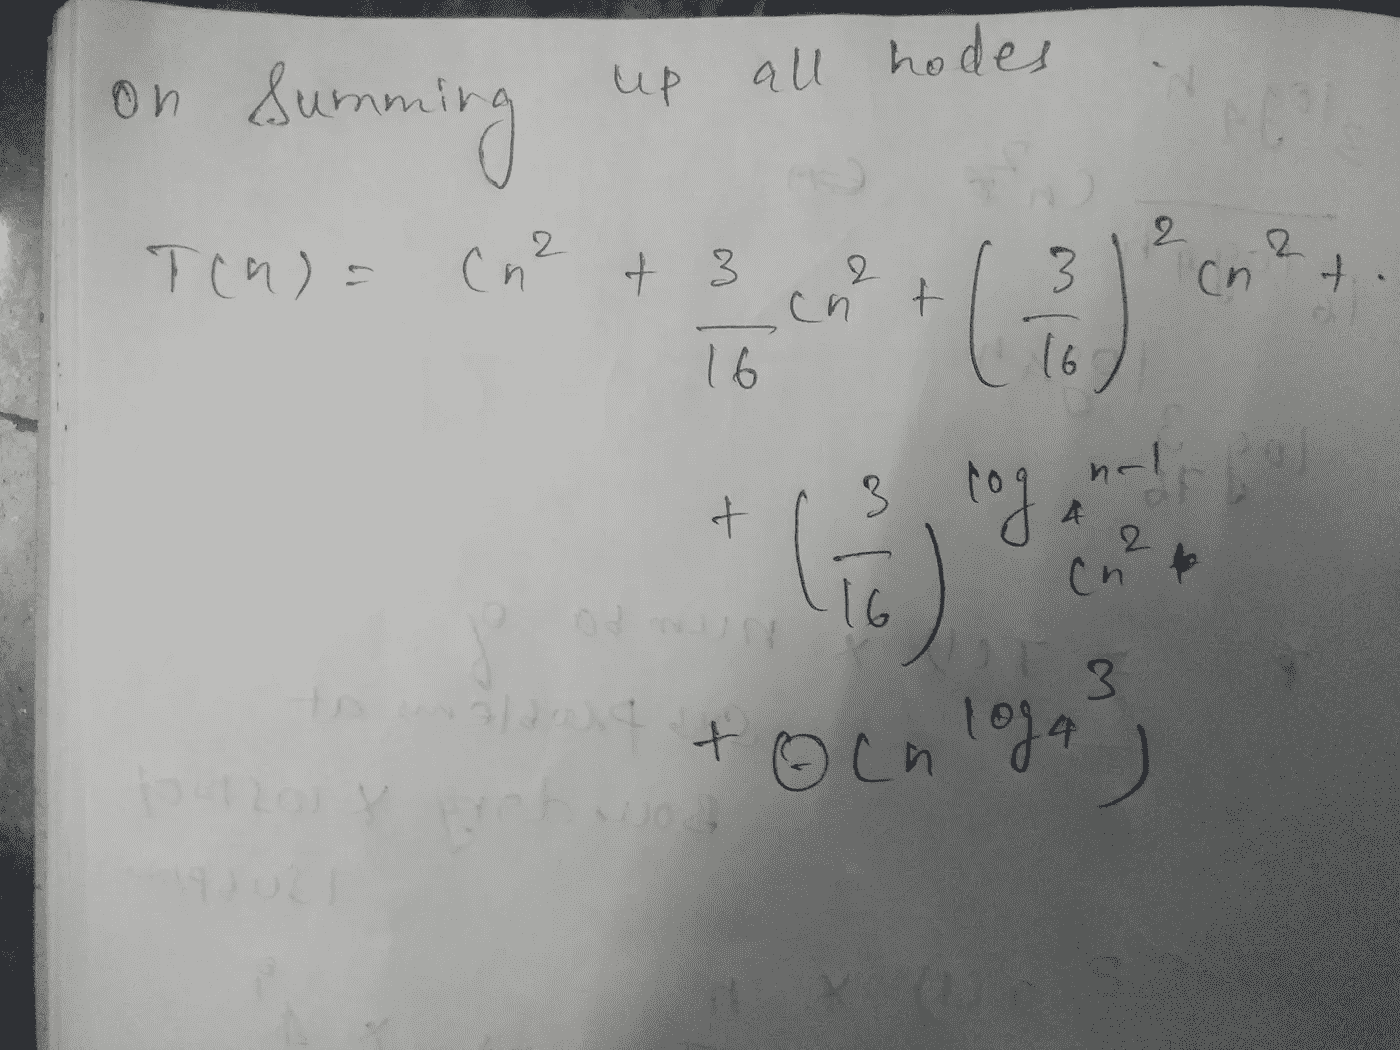 on Summing up all nodes
T(n) = Cn² + 3/16 cn² + (3/16)² cn² + .
+ (3/16)^log₄ n-1 cn² +
+ Θ(n^log₄ 3)